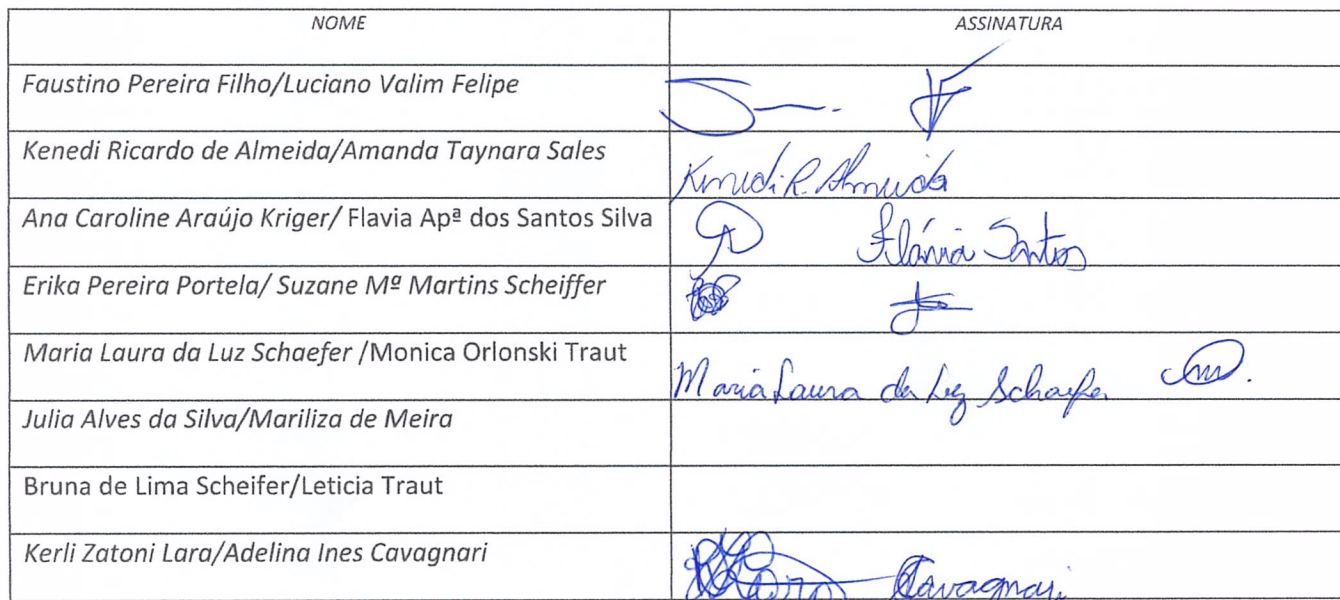 NOME ASSINATURA
Faustino Pereira Filho/Luciano Valim Felipe
Kenedi Ricardo de Almeida/Amanda Taynara Sales
Kenedi R. Almeida
Ana Caroline Araújo Kriger/ Flavia Apª dos Santos Silva
Flávia Santos
Erika Pereira Portela/ Suzane Mª Martins Scheiffer
Maria Laura da Luz Schaefer /Monica Orlonski Traut
Maria Laura da Luz Schaefer
Julia Alves da Silva/Mariliza de Meira
Bruna de Lima Scheifer/Leticia Traut
Kerli Zatoni Lara/Adelina Ines Cavagnari
Cavagnari